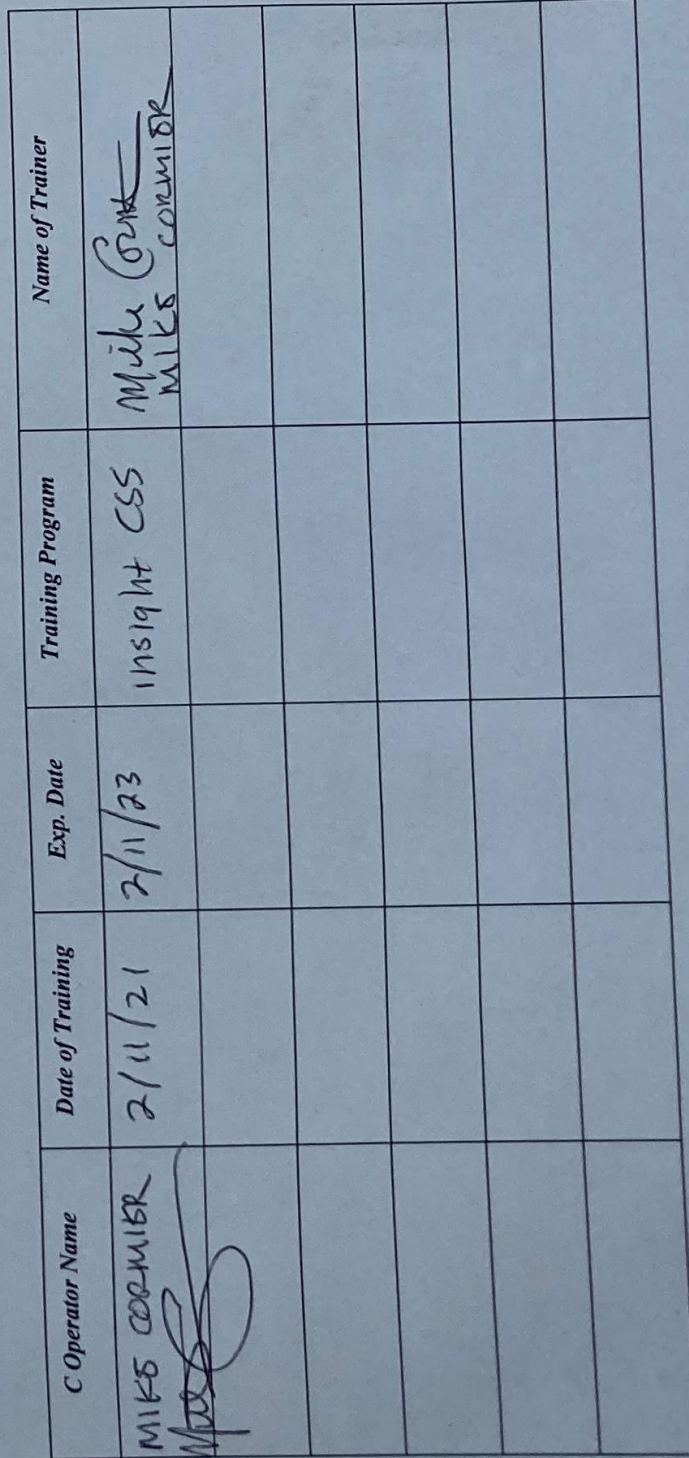 C Operator Name Date of Training Exp. Date Training Program Name of Trainer
MIKE CORMIER 2/11/21 2/11/23 Insight CSS Mike
MIKE CORMIER